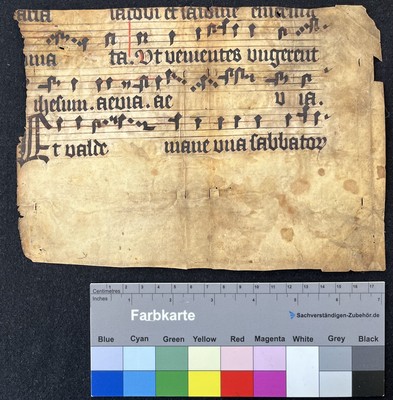 iacobi et salome
ta. Vt venientes vngerent
ihesum. aevia. ae v ia.
Et valde mane vna sabbator
Centimetres
Inches
Farbkarte
Sachverständigen-Zubehör.de
Blue Cyan Green Yellow Red Magenta White Grey Black